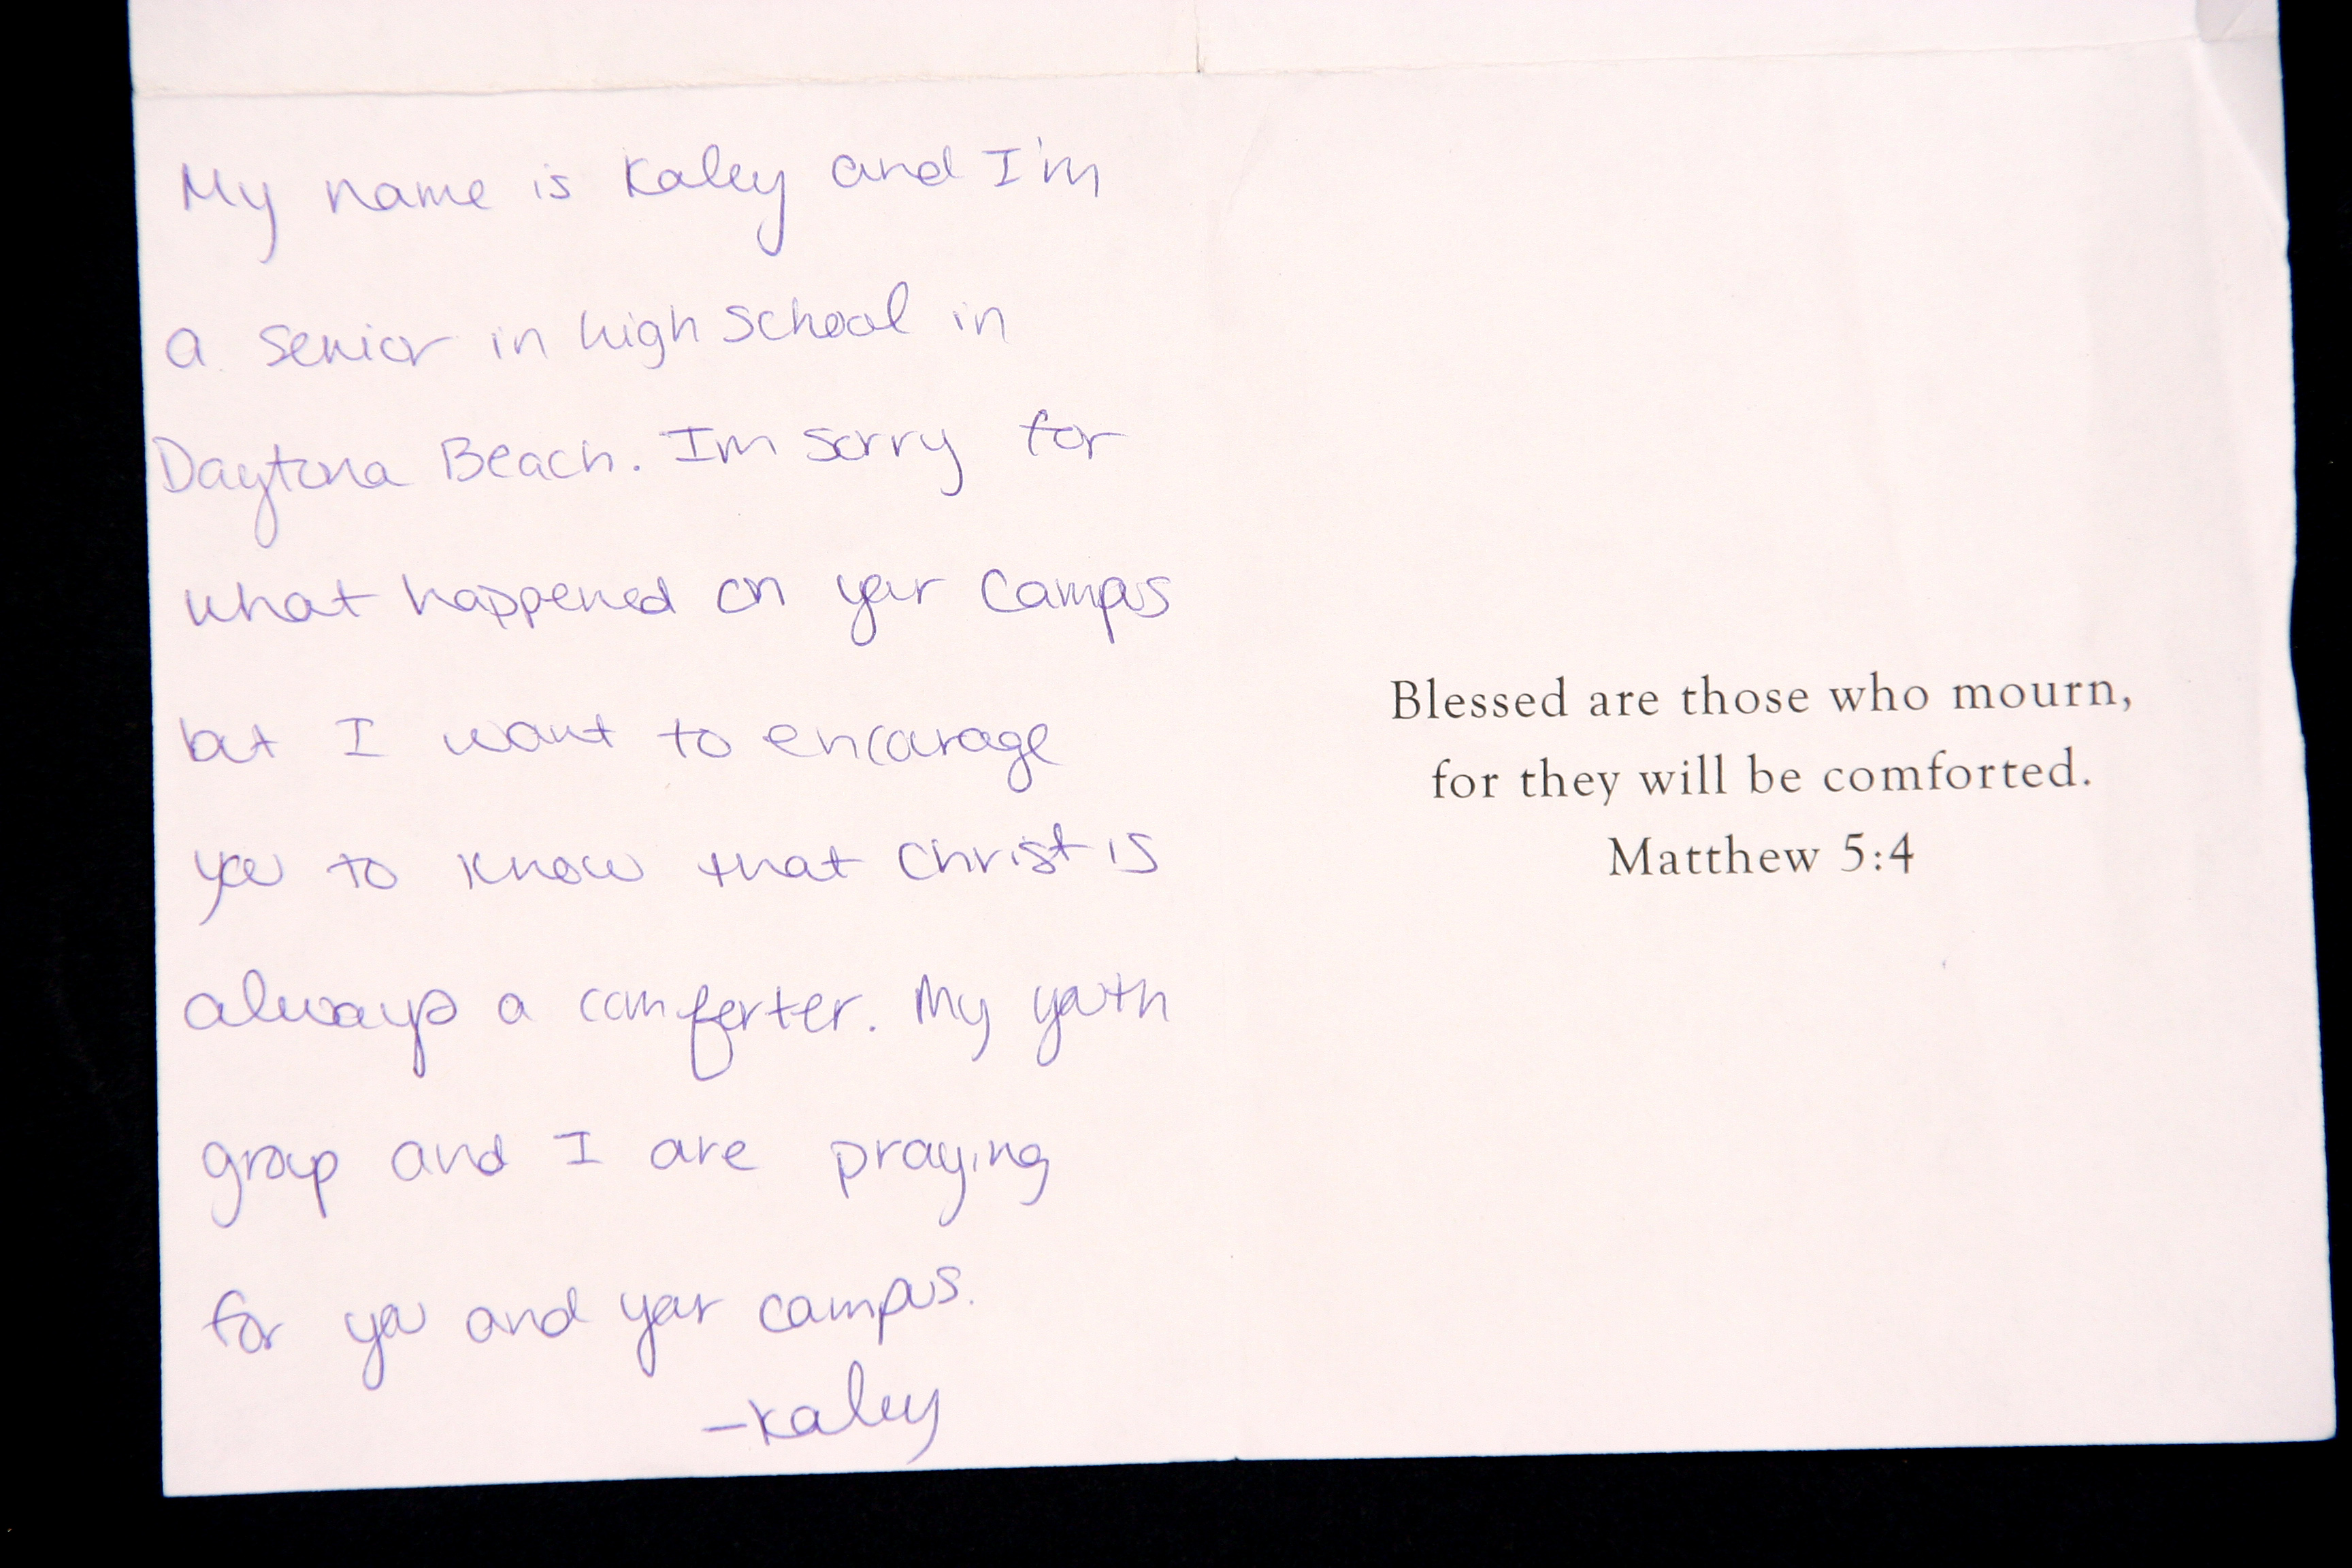 My name is Kaley and I'm
a senior in high school in
Daytona Beach. Im sorry for
what happened on your campus
but I want to encourage
you to know that Christ is
always a comforter. My youth
group and I are praying
for you and your campus.
-Kaley
Blessed are those who mourn,
for they will be comforted.
Matthew 5:4